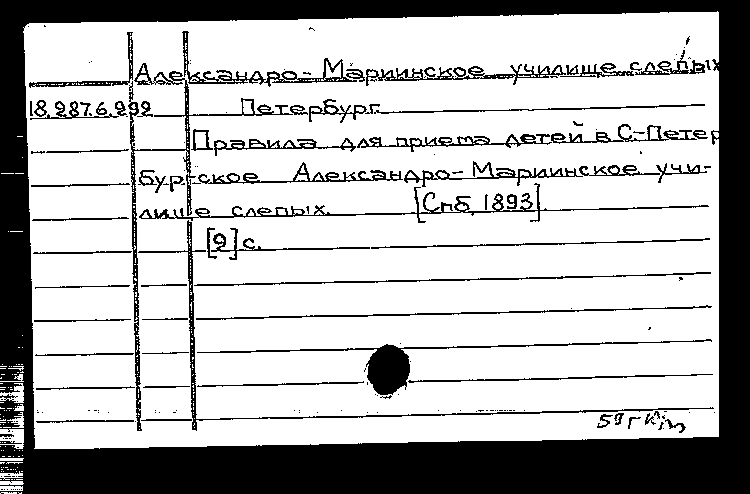 Александро-Мариинское училище слепых
18.287.6.292 Петербург.
Правила для приема детей в С-Петер
бургское Александро-Мариинское учи-
лище слепых. [Спб, 1893].
[2] с.
59г